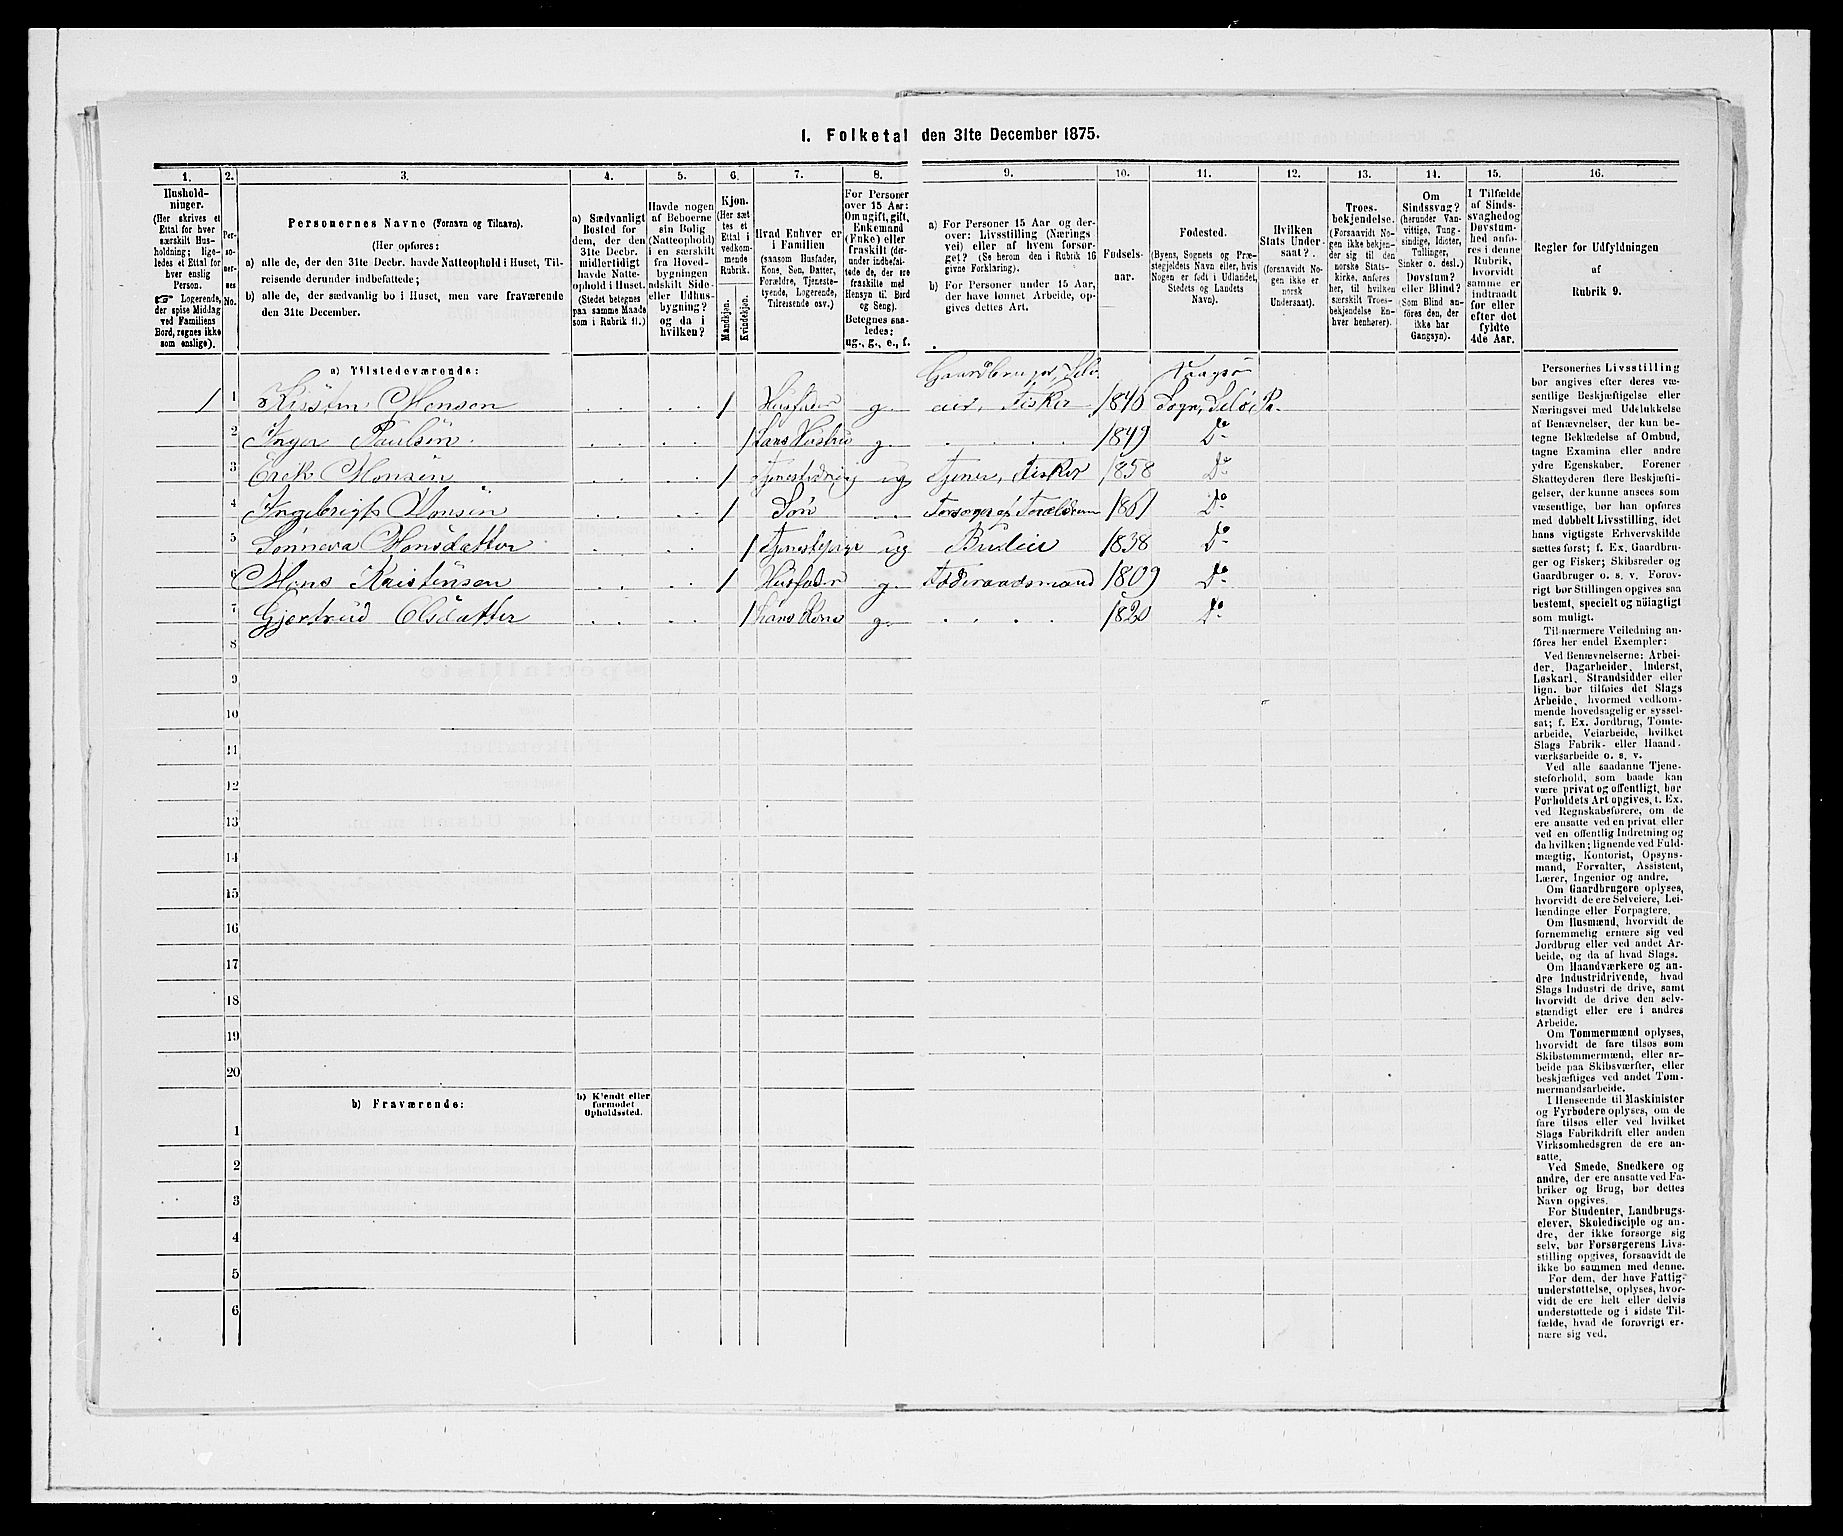 I. Folketal den 31te December 1875.
1. 2. 3. 4. 5. 6. 7. 8. 9. 10. 11. 12. 13. 14. 15. 16.
Hushold-
ninger.
(Her skrives et
Ettal for hver
særskilt Hus-
holdning; lige-
ledes et Ettal for
hver enslig
Person.
☞ Logerende,
der spise Middag
ved Familiens
Bord, regnes ikke
som enslige).
Per-
so-
ner-
nes
No.
Personernes Navne (Fornavn og Tilnavn).
(Her opføres:
a) alle de, der den 31te Decbr. havde Natteophold i Huset, Til-
reisende derunder indbefattede;
b) alle de, der sædvanlig bo i Huset, men vare fraværende
den 31te December.
a) Sædvanligt
Bosted for
dem, der den
31te Decbr.
midlertidigt
havde Natte-
ophold i Huset.
(Stedet betegnes
paa samme Maade
som i Rubrik 11.)
Havde nogen
af Beboerne
sin Bolig
(Natteophold)
i en særskilt
fra Hoved-
bygningen
adskilt Side-
eller Udhus-
bygning?
og da i
hvilken?
Kjøn.
(Her sæt-
tes et
Ettal i
vedkom-
mende
Rubrik.
Mandkjøn.
Kvindekjøn.
Hvad Enhver er
i Familien
(saasom Husfader,
Kone, Søn, Datter,
Forældre, Tjeneste-
tyende, Logerende,
Tilreisende osv.)
For Personer
over 15 Aar:
Om ugift, gift,
Enkemand
(Enke) eller
fraskilt (der-
under indbefat-
tede de, der ere
fraskilte med
Hensyn til Bord
og Seng).
Betegnes saa-
ledes:
ug., g., e., f.
a) For Personer 15 Aar og der-
over: Livsstilling (Nærings-
vei) eller af hvem forsør-
get? (Se herom den i Rubrik 16
givne Forklaring).
b) For Personer under 15 Aar,
der have lønnet Arbeide, op-
gives dettes Art.
Fødsels-
aar.
Fødested.
(Byens, Sognets og Præ-
stegjeldets Navn eller, hvis
Nogen er født i Udlandet,
Stedets og Landets
Navn).
Hvilken
Stats Under-
saat?
(forsaavidt No-
gen ikke er
norsk
Undersaat).
Troes-
bekjendelse.
(Forsaavidt No-
gen ikke bekjen-
der sig til den
norske Stats-
kirke, anføres
her, til hvilken
særskilt Troes-
bekjendelse En-
hver henhører).
Om
Sindssvag?
(herunder Van-
vittige, Tung-
sindige, Idioter,
Tullinger,
Sinker o. desl.)
Døvstum?
eller Blind?
(Som Blind an-
føres den, der
ikke har
Gangsyn).
I Tilfælde
af Sinds-
svaghed og
Døvstum-
hed anfø-
res i denne
Rubrik,
hvorvidt
samme er
indtraadt
før eller
efter det
fyldte
4de Aar.
Regler for Udfyldningen
af
Rubrik 9.
a) Tilstedeværende:
Gaardbruger, Selv- Vaagsø
1 1 Kristen Monsen 1 Husfader g. eier, Fisker 1840 Sogn, Selø Pr.
2 Inger Paulsen 1 hans Hustru g. 1849 Do
3 Erek Monsen 1 Tjenestedreng ug Tjener, Fisker 1858 Do
4 Ingebrigt Monsen 1 Søn Forsørges af Forældrene 1861 Do
5 Sønneva Monsdatter 1 Tjenestepige ug Budeie 1838 Do
6 Mons Kristensen 1 Husfader g. Føderaadsmand 1809 Do
7 Gjertrud Olsdatter 1 hans Kone g. 1820 Do
8
9
10
11
12
13
14
15
16
17
18
19
20
b) Fraværende:
b) Kjendt eller
formodet
Opholdssted.
1
2
3
4
5
6
Personernes Livsstilling
bør angives efter deres væ-
sentlige Beskjæftigelse eller
Næringsvei med Udelukkelse
af Benævnelser, der kun be-
tegne Beklædelse af Ombud,
tagne Examina eller andre
ydre Egenskaber. Forener
Skatteyderen flere Beskjæfti-
gelser, der kunne ansees som
væsentlige, bør han opføres
med dobbelt Livsstilling, idet
hans vigtigste Erhvervskilde
sættes først; f. Ex. Gaardbru-
ger og Fisker; Skibsreder og
Gaardbruger o. s. v. Forøv-
rigt bør Stillingen opgives saa
bestemt, specielt og nøiagtigt
som muligt.
Til nærmere Veiledning an-
føres her endel Exempler:
Ved Benævnelserne: Arbei-
der, Dagarbeider, Inderst,
Løskarl, Strandsidder eller
lign. bør tilføies det Slags
Arbeide, hvormed vedkom-
mende hovedsagelig er syssel-
sat; f. Ex. Jordbrug, Tomte-
arbeide, Veiarbeide, hvilket
Slags Fabrik- eller Haand-
værksarbeide o. s. v.
Ved alle saadanne Tjene-
steforhold, som baade kan
være privat og offentligt, bør
Forholdets Art opgives, t. Ex.
ved Regnskabsførere, om de
ere ansatte ved en privat eller
ved en offentlig Indretning og
da hvilken; lignende ved Fuld-
mægtig, Kontorist, Opsyns-
mand, Forvalter, Assistent,
Lærer, Ingeniør og andre.
Om Gaardbrugere oplyses,
hvorvidt de ere Selveiere, Lei-
lændinge eller Forpagtere.
Om Husmænd, hvorvidt de
fornemmelig ernære sig ved
Jordbrug eller ved andet Ar-
beide, og da af hvad Slags.
Om Haandværkere og an-
dre Industridrivende, hvad
Slags Industri de drive, samt
hvorvidt de drive den selv-
stændigt eller ere i andres
Arbeide.
Om Tømmermænd oplyses,
hvorvidt de fare tilsøs som
Skibstømmermænd, eller ar-
beide paa Skibsværfter, eller
beskjæftiges ved andet Tøm-
mermandsarbeide.
I Henseende til Maskinister
og Fyrbødere oplyses, om de
fare tilsøs eller ved hvilket
Slags Fabrikdrift eller anden
Virksomhedsgren de ere an-
satte.
Ved Smede, Snedkere og
andre, der ere ansatte ved Fa-
briker og Brug, bør dettes
Navn opgives.
For Studenter, Landbrugs-
elever, Skoledisciple og an-
dre, der ikke forsørge sig
selv, bør Forsørgerens Livs-
stilling opgives, forsaavidt de
ikke bo sammen med denne.
For dem, der have Fattig-
understøttelse, oplyses, hvor-
vidt de ere helt eller delvis
understøttede og i sidste Til-
fælde, hvad de forøvrigt er-
nære sig ved.